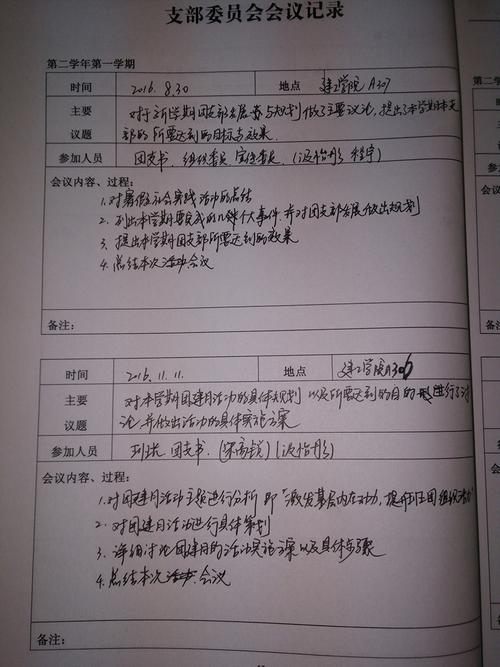 支部委员会会议记录
第二学年第一学期
时间 2016. 8.30 地点 建工学院 A307
主要 对于新学期团支部发展与规划做了主要议论,提出了本学期本支
议题 部的所需达到的目标与效果.
参加人员 团支书、组织委员 宣传委员
会议内容、过程:
1. 对暑假社会实践活动的总结
2. 列出本学期要完成的几件大事件 并对团支部发展做出规划
3. 提出本学期团支部所需达到的效果
4. 总结本次活动会议
备注:
时间 2016. 11. 11. 地点 建工学院A306
主要 对本学期团建月活动的具体规划 以及所需达到的目的 进行了讨
议题 论,并做出活动的具体实施方案
参加人员 班长 团支书.
会议内容、过程:
1. 对团建月活动主题进行分析 即“激发基层内在动力,提升班团组织活力”
2. 对团建月活动进行具体策划
3. 详细讨论团建月的活动实施方案以及具体步骤
4. 总结本次 会议
备注: